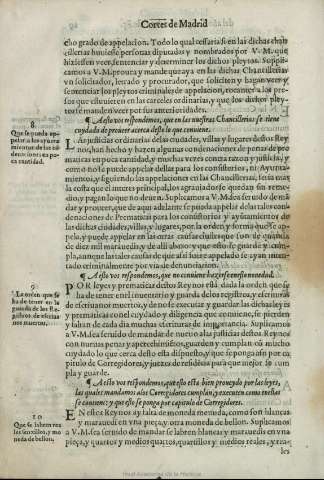 Cortes de Madrid
cho grado de apelacion. Todo lo qual cessaria si en las dichas chãcillerias huuiesse personas diputadas y nombrados por V. M. que
hiziessen veer, sentenciar y determinar los dichos pleytos. Suplicamos a V. M. prouea y mande que aya en las dichas Chancillerias
vn solicitador, letrado y procurador, que soliciten y hagan veer y
sentenciar los pleytos criminales de apelacion, tocantes a los presos que estuuieren en las carceles ordinarias, y que los dichos pleytos se manden veer por sus anterioridades.
¶ A esto vos respondemos, que en las nuestras Chancillerias se tiene
cuydado de proueer acerca desto lo que conuiene.
8.
Que se pueda apelar a los ayuntamientos de las condenaciones en poca cantidad.
LAs justicias ordinarias de las ciudades, villas y lugares destos Reynos, han hecho y hazen algunas condenaciones de penas de prematicas en poca cantidad, y muchas vezes contra razon y justicia, y
como no se puede appelar dellas para los consistorios, ni Ayuntamientos, y siguiendo las appelaciones en las Chancillerias, seria mas
la costa que el interes principal, los agrauiados se quedan sin remedio, y pagan lo que no deuen. Suplicamos a V. M. sea seruido de mãdar y proueer, que de aqui adelante se pueda appelar de las tales condenaciones de Prematicas para los consistorios y ayuntamientos de
las dichas ciudades, villas, y lugares, por la orden y forma que se apela, y puede appelar en las otras causas ciuiles que son de quantia
de diez mil marauedis, y de alli abaxo, y que esto se guarde y cumpla, aunque las tales causas de que assi fuere apelado se ayan intentado criminalmente por via de denunciacion.
¶ A esto vos respondemos, que no conuiene hazerse en esto nouedad.
9.
La orden que se ha de tener en la guarda de los Registros de escriuanos muertos.
POR leyes y prematicas destos Reynos está dada la orden que se
ha de tener en el inuentario y guarda de los registros, y escrituras
de escriuanos muertos, y de no se executar y guardar las dichas leyes
y prematicas con el cuydado y diligencia que conuiene, se pierden
y faltan de cada dia muchas escrituras de importancia. Suplicamos
a V. M. sea seruido de mandar de nueuo a las justicias destos Reynos
con nueuas penas y apercebimientos, guarden y cumplan cõ mucho
cuydado lo que cerca desto ella dispuesto, y que se ponga assi por capitulo de Corregidores, y juezes de residencia para que mejor se cumpla y guarde.
¶ A esto vos respondemos, que esto esta bien proueydo por las leyes,
las quales mandamos a los Corregidores cumplan, y executen como vieren
se conuiene: y que esto se ponga por capitulo de Corregidores.
10
Que se labren reales senzillos, y moneda de bellon.
EN estos Reynos ay falta de moneda menuda, como son blancas
y marauedi en vna pieça, y otra moneda de bellon. Suplicamos
a V. M. sea seruido de mandar se labren blancas y marauedis en vna
pieça, y quartos y medios quartos, quartillos y medios reales, y rea-
les
Real Academia de la Historia